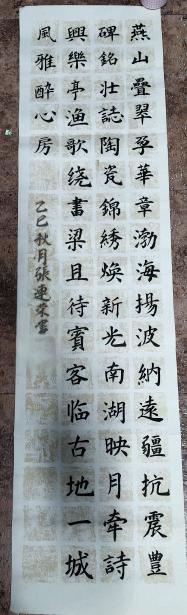 燕山疊翠孕華章渤海揚波納遠疆抗震豐
碑銘壯誌陶瓷錦綉煥新光南湖映月牽詩
興樂亭渔歌绕書梁且待賓客临古地一城
風雅醉心房
乙巳秋月張連宋書